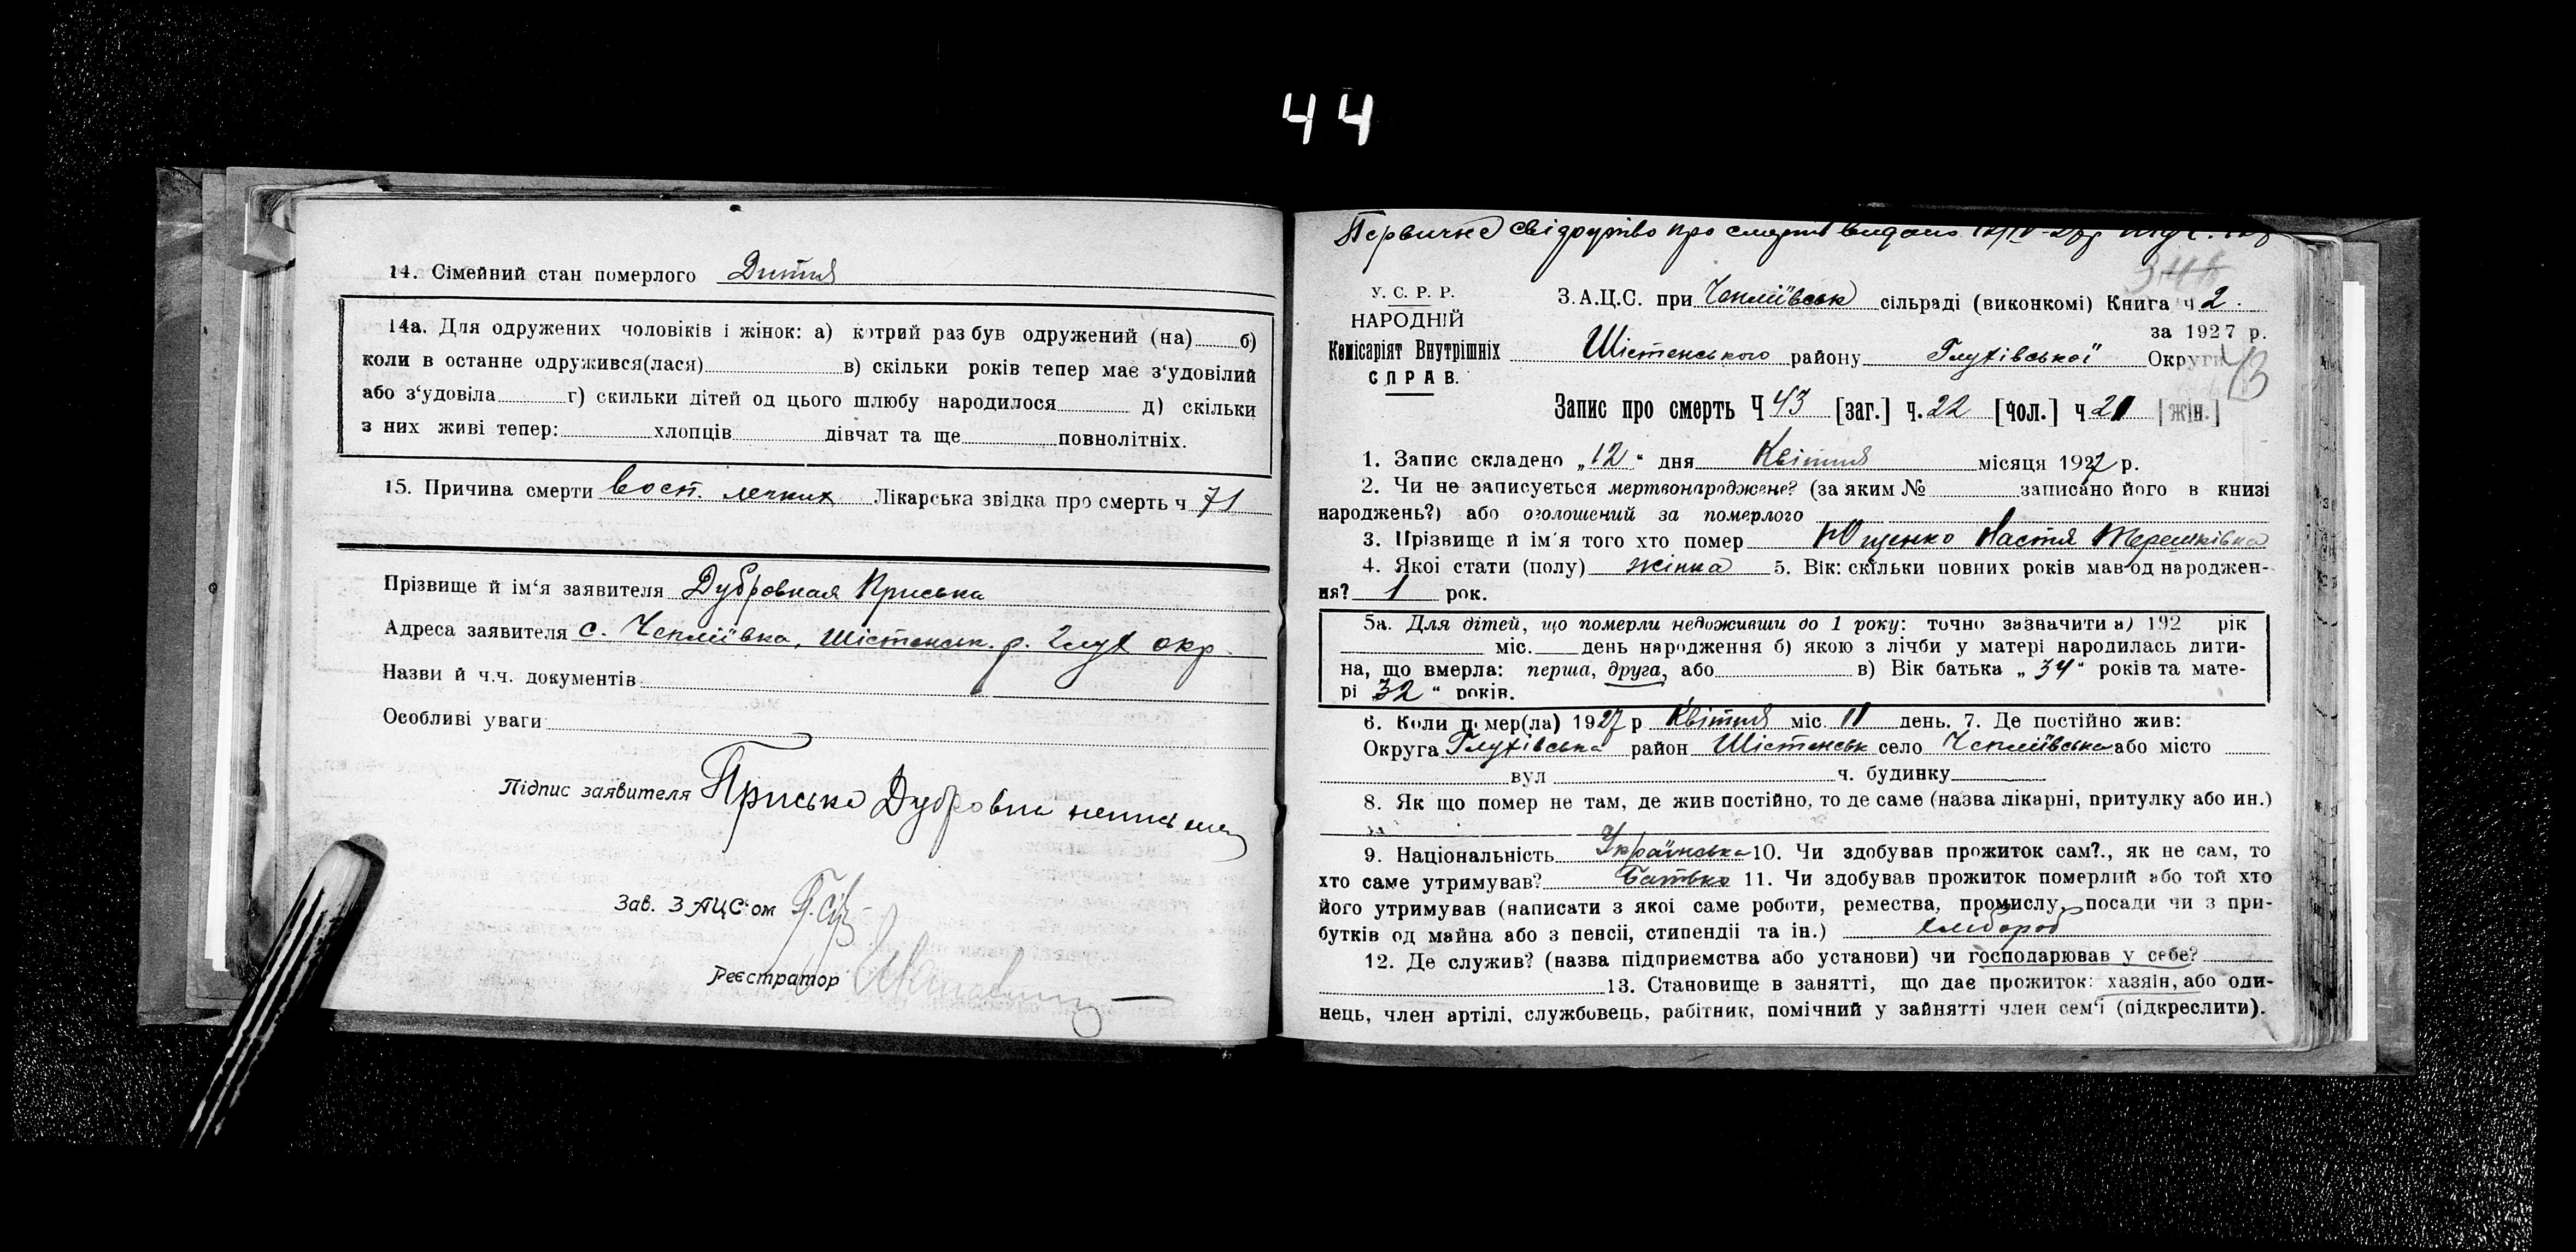 44
14. Сімейний стан померлого Дитина
14а. Для одружених чоловіків і жінок: а) котрий раз був одружений (на) б)
коли в останне одружився(лася) в) скільки років тепер має з‘удовілий
або з‘удовіла г) скильки дітей од цього шлюбу народилося д) скільки
з них живі тепер: хлопців дівчат та ще повнолітніх.
15. Причина смерти восп. легких Лікарська звідка про смерть ч 71
Прізвище й ім‘я заявителя Дубровная Приська
Адреса заявителя с. Чепліївка, Шістенськ. р. Глух окр.
Назви й ч.ч. документів
Особливі уваги
Підпис заявителя Приська Дубровна
Зав. ЗАЦС‘ом
Реєстратор
Первичне свідоцтво про смерть видано
У. С. Р. Р.
НАРОДНІЙ
Комісаріят Внутрішніх
СПРАВ.
З.А.Ц.С. при Чепліївськ сільраді (виконкомі) Книга ч 2.
за 1927 р.
Шістенського району Глухівської Округи
43
Запис про смерть Ч 43 [заг.] ч. 22 [чол.] ч 21 [жін.]
1. Запис складено „12“ дня Квітня місяця 1927 р.
2. Чи не записується мертвонароджене? (за яким № записано його в книзі
народжень?) або оголошений за померлого
3. Прізвище й ім'я того хто помер Ющенко Настя Терешківна
4. Якої стати (полу) жінка 5. Вік: скільки повних років мав од народжен-
ня? 1 рок.
5а. Для дітей, що померли недоживши до 1 року: точно зазначити а) 192 рік
міс. день народження б) якою з лічби у матері народилась дити-
на, що вмерла: перша, друга, або в) Вік батька „34“ років та мате-
рі 32 “ років.
6. Коли помер(ла) 1927 р Квітня міс. 11 день. 7. Де постійно жив:
Округа Глухівська район Шістенськ село Чепліївська або місто
вул ч. будинку
8. Як що помер не там, де жив постійно, то де саме (назва лікарні, притулку або ин.)
9. Національність Українська 10. Чи здобував прожиток сам?., як не сам, то
хто саме утримував? Батько 11. Чи здобував прожиток померлий або той хто
його утримував (написати з якоі саме роботи, ремества, промислу, посади чи з при-
бутків од майна або з пенсіі, стипендіі та ін.) хлібороб
12. Де служив? (назва підприємства або установи) чи господарював у себе?
13. Становище в занятті, що дає прожиток: хазяін, або оди-
нець, член артілі, службовець, рабітник, помічний у зайнятті член сем‘ї (підкреслити).